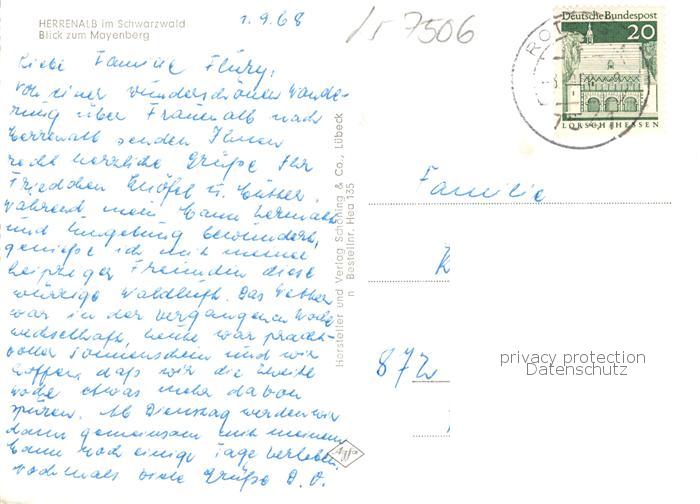 HERRENALB im Schwarzwald
Blick zum Mayenberg
1.9.68
7506
Deutsche Bundespost
20
LORSCH HESSEN
Liebe Familie Flury,
Von einer wunderschönen Wande-
rung über Frauenalb nach
Herrenalb senden Ihnen
recht herzliche Grüße Ihr
Friedchen u. Mutter.
Während mein Mann Herrenalb
und Umgebung bewundert,
genieße ich mit meinen
Leipziger Freunden diese
würzige Waldluft. Das Wetter
war in der vergangenen Woche
wechselhaft, heute war pracht-
voller Sonnenschein und wir
hoffen, daß wir die zweite
Woche etwas mehr davon
spüren. Ab Dienstag werden wir
dann gemeinsam mit meinem
Mann noch einige Tage verleben.
Nochmals viele Grüße D. O.
Hersteller und Verlag Schöning & Co., Lübeck
n Bestellnr. Hea 135
Agfa
Familie
K
872
privacy protection
Datenschutz